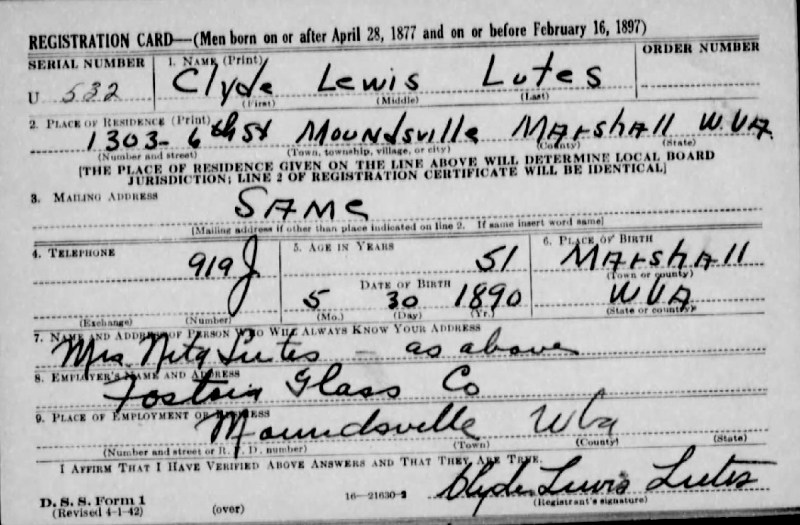 REGISTRATION CARD—(Men born on or after April 28, 1877 and on or before February 16, 1897)
SERIAL NUMBER 1. NAME (Print) ORDER NUMBER
U 532 Clyde Lewis Lutes
(First) (Middle) (Last)
2. PLACE OF RESIDENCE (Print)
1303- 6th St Moundsville Marshall W.VA.
(Number and street) (Town, township, village, or city) (County) (State)
[THE PLACE OF RESIDENCE GIVEN ON THE LINE ABOVE WILL DETERMINE LOCAL BOARD
JURISDICTION; LINE 2 OF REGISTRATION CERTIFICATE WILL BE IDENTICAL]
3. MAILING ADDRESS
SAME
[Mailing address if other than place indicated on line 2. If same insert word same]
4. TELEPHONE 5. AGE IN YEARS 6. PLACE OF BIRTH
919 J 51 Marshall
(Town or county)
DATE OF BIRTH
5 30 1890 WVA
(Exchange) (Number) (Mo.) (Day) (Yr.) (State or country)
7. NAME AND ADDRESS OF PERSON WHO WILL ALWAYS KNOW YOUR ADDRESS
Mrs. Nita Lutes - as above
8. EMPLOYER'S NAME AND ADDRESS
Fostoria Glass Co
9. PLACE OF EMPLOYMENT OR BUSINESS
Moundsville W Va
(Number and street or R. F. D. number) (Town) (County) (State)
I AFFIRM THAT I HAVE VERIFIED ABOVE ANSWERS AND THAT THEY ARE TRUE.
Clyde Lewis Lutes
D. S. S. Form 1 16—21630-2 (Registrant's signature)
(Revised 4-1-42) (over)